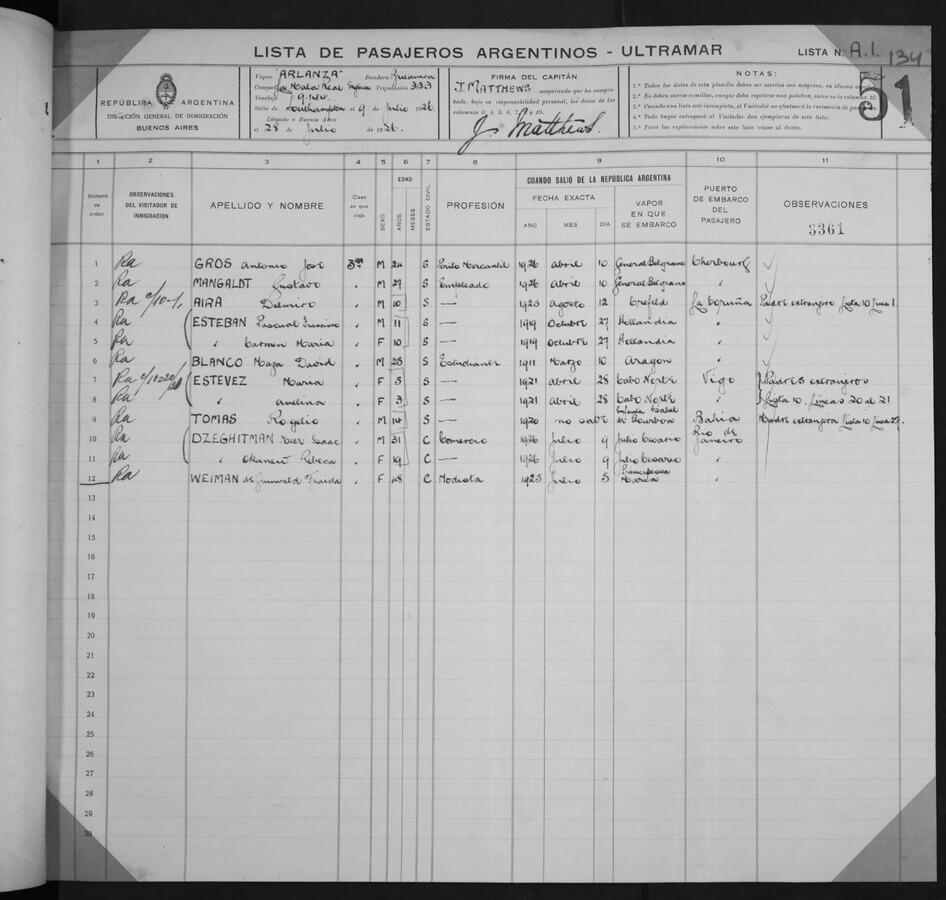 LISTA DE PASAJEROS ARGENTINOS - ULTRAMAR
LISTA N. A.1. 134
REPÚBLICA ARGENTINA
DIRECCIÓN GENERAL DE INMIGRACIÓN
BUENOS AIRES
Vapor "ARLANZA" Bandera Britanica
Compañía La Mala Real Inglesa Tripulación 333
Tonelaje
Salió de Southampton el 9 de Julio 1926
Llegado a Buenos Aires
el 28 de Julio de 1926.
FIRMA DEL CAPITÁN
J. MATTHEWS asegurando que ha comprobado, bajo su responsabilidad personal, los datos de las columnas 3, 4, 5, 6, 7, 8, 9 y 10.
J. Matthews.
NOTAS:
1.ª Todos los datos de esta planilla deben ser escritos con máquina, en idioma
2.ª No deben usarse comillas, aunque deba repetirse una palabra, salvo en la columna 10.
3.ª Cuando una lista esté incompleta, el Visitador no efectuará la revisación de
4.ª Todo buque entregará al Visitador dos ejemplares de esta lista.
5.ª Para las explicaciones sobre esta lista véase al dorso.
51
1 2 3 4 5 6 7 8 9 10 11
Número de orden
OBSERVACIONES DEL VISITADOR DE INMIGRACIÓN
APELLIDO Y NOMBRE
Clase en que viaja
SEXO
EDAD
AÑOS
MESES
ESTADO CIVIL
PROFESIÓN
CUANDO SALIÓ DE LA REPÚBLICA ARGENTINA
FECHA EXACTA
AÑO MES DIA
VAPOR EN QUE SE EMBARCÓ
PUERTO DE EMBARCO DEL PASAJERO
OBSERVACIONES
3361
1 Ra GROS Antonio José 3ra M 24 S Perito Mercantil 1926 Abril 10 General Belgrano Cherbourg
2 Ra MANGALDT Gustavo " M 27 S Empleado 1926 Abril 10 General Belgrano "
3 Ra c/10-1 AIRA Delmiro " M 10 S — 1925 Agosto 12 Crefeld La Coruña Padre extranjero Lista 10 Linea 1.
4 Ra ESTEBAN Pascual Francisco " M 11 S — 1919 Octubre 27 Hollandia "
5 Ra " Carmen Maria " F 10 S — 1919 Octubre 27 Hollandia "
6 Ra BLANCO Maza David " M 25 S Estudiante 1911 Marzo 10 Aragon "
7 Ra c/10-20/21 ESTEVEZ Maria " F 5 S — 1921 Abril 28 Cabo Norte Vigo Padres extranjeros
8 Ra " Avelina " F 3 S — 1921 Abril 28 Cabo Norte " Lista 10. Lineas 20 al 21
9 Ra TOMAS Rogelio " M 14 S — 1920 no sabe Infanta Isabel de Bourbon Bahia Madre extranjera Lista 10 Linea 27.
10 Ra DZEGHITMAN Isaac " M 31 C Comercio 1926 Julio 9 Julio Cesario Rio de Janeiro
11 Ra " Rebeca " F 19 C — 1926 Julio 9 Julio Cesario "
12 Ra WEIMAN de Grunwald " F 48 C Modista 1925 Julio 5 Principessa Maria "
13
14
15
16
17
18
19
20
21
22
23
24
25
26
27
28
29
30